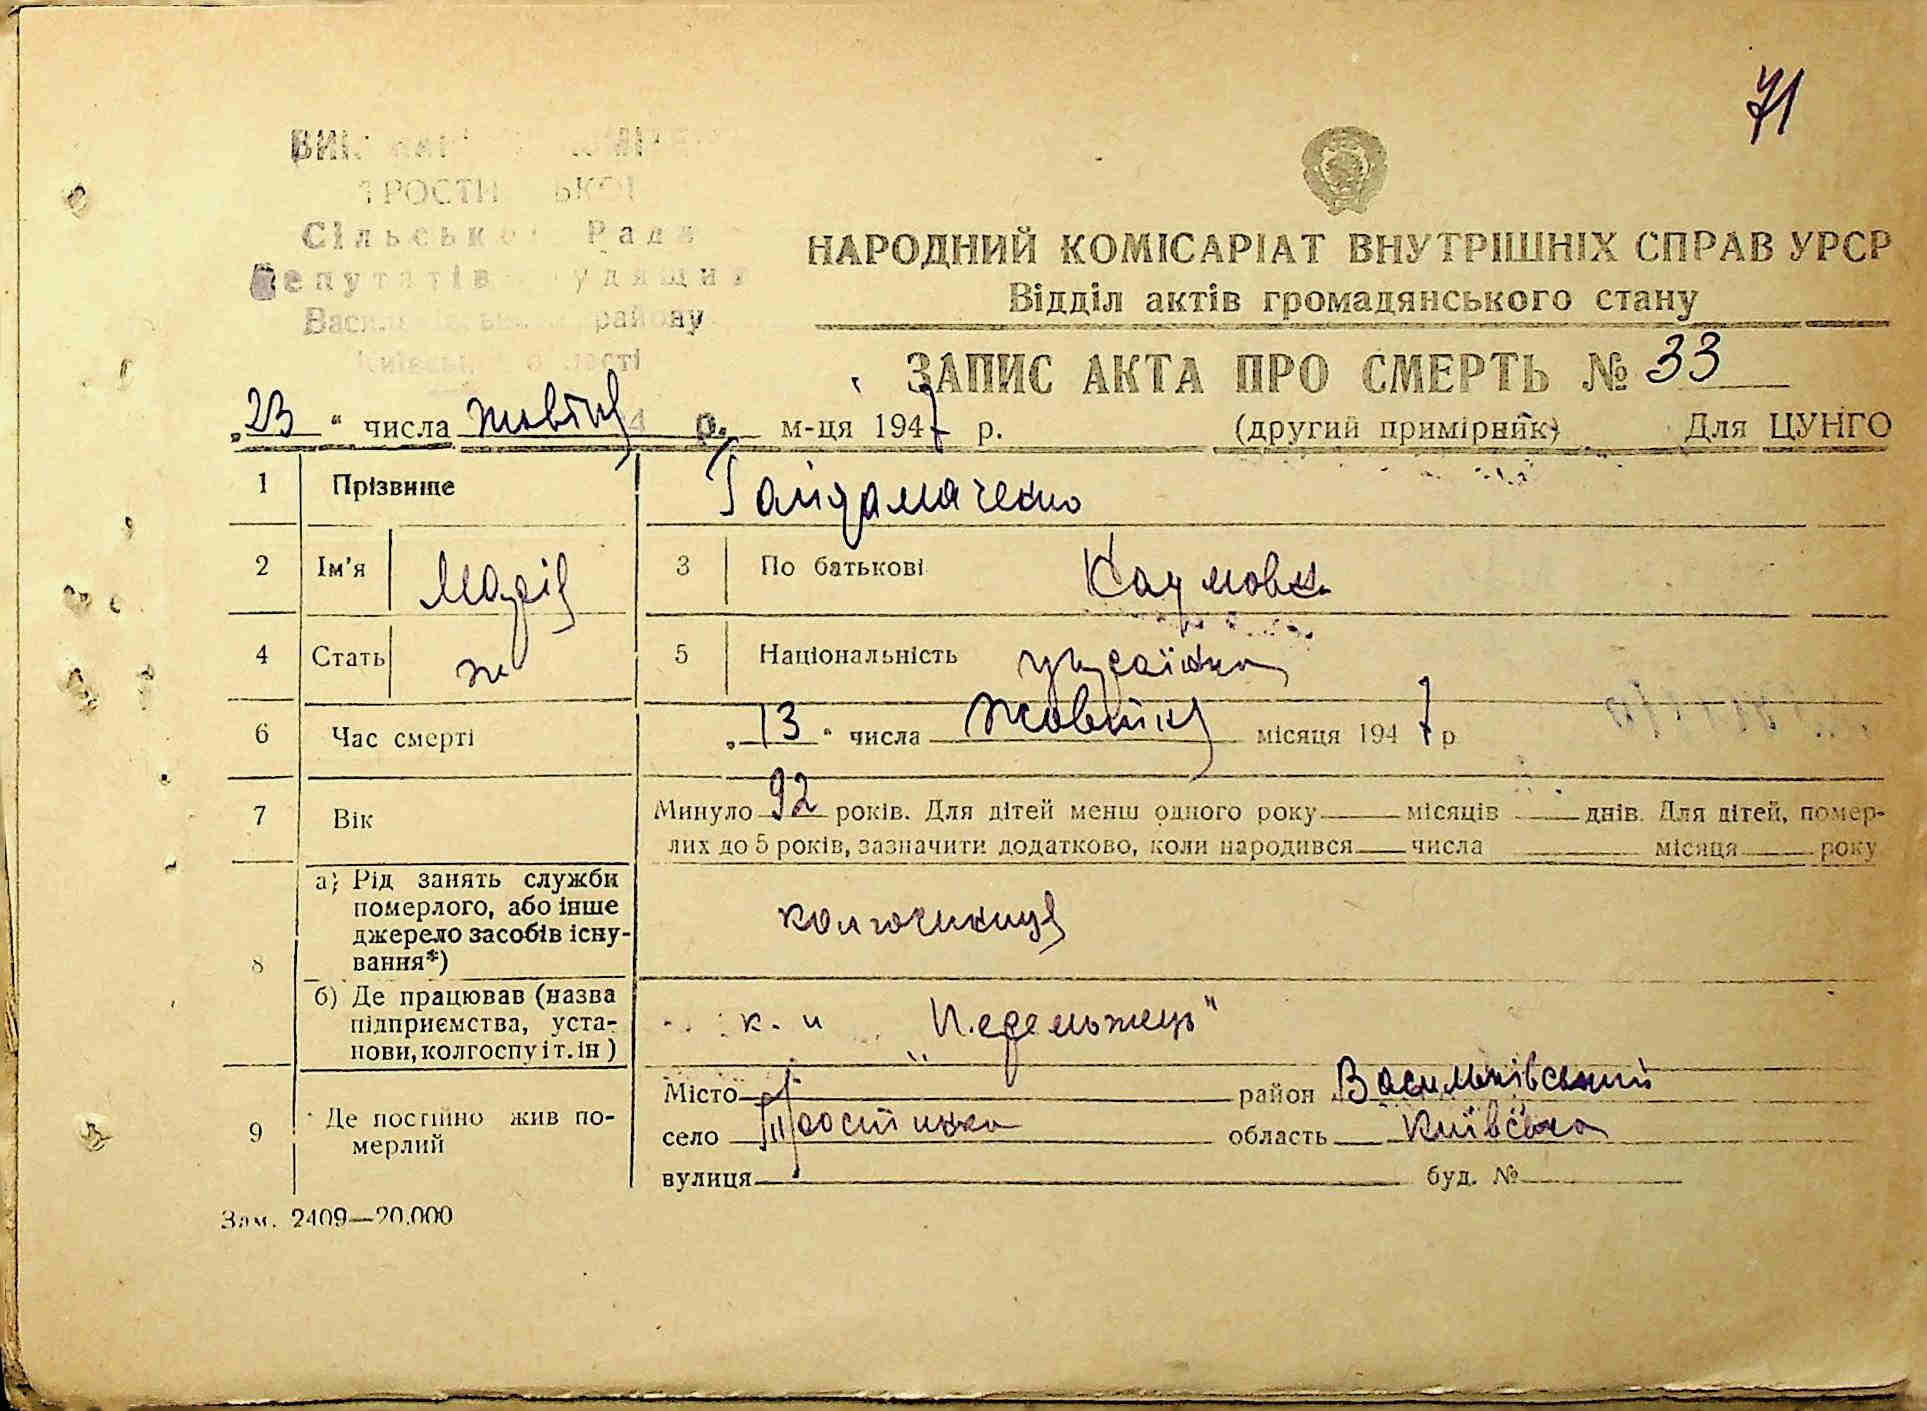 71
Сільсько Рада
району
НАРОДНИЙ КОМІСАРІАТ ВНУТРІШНІХ СПРАВ УРСР
Відділ актів громадянського стану
ЗАПИС АКТА ПРО СМЕРТЬ № 33
„23 “ числа жовтня м-ця 1947 р. (другий примірник) Для ЦУНГО
1 Прізвище Гайдамаченко
2 Ім'я Марія 3 По батькові Наумовна
4 Стать ж 5 Національність українка
6 Час смерті „13 “ числа жовтня місяця 1947 р
7 Вік Минуло 92 років. Для дітей менш одного року місяців днів. Для дітей, помер-
лих до 5 років, зазначити додатково, коли народився числа місяця року
8 а) Рід занять служби
померлого, або інше
джерело засобів існу-
вання*)
колгоспниця
б) Де працював (назва
підприємства, уста-
нови, колгоспу і т. ін )
к.
9 Де постійно жив по-
мерлий
Місто район Васильківський
село Тростинка область Київська
вулиця буд. №
Зам. 2409—20.000